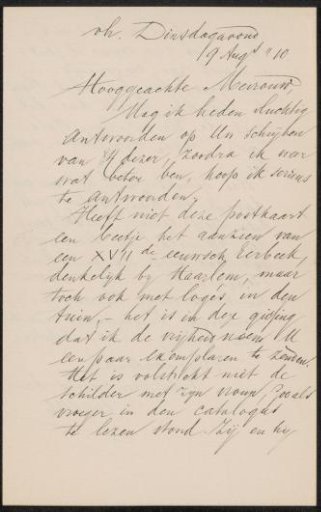 vh. Dinsdagavond
19 Augt '10
Hooggeachte Mevrouw,
Mag ik heden vluchtig
antwoorden op Uw schrijven
van dezer, zoodra ik wer
wat beter ben, hoop ik serieus
te antwoorden.
Heeft niet deze postkaart
een beetje het aanzien van
een XVII de eeuwsch
denkelijk bij Haarlem, maar
toch ook met logés, in den
tuin, - het is in dex
dat ik de vrijheid neem U
een paar exemplaren te zenden
Het is volstrekt niet de
schilder met zijn vrouw, zooals
vroeger in den catalogus
te lezen stond zij en hij